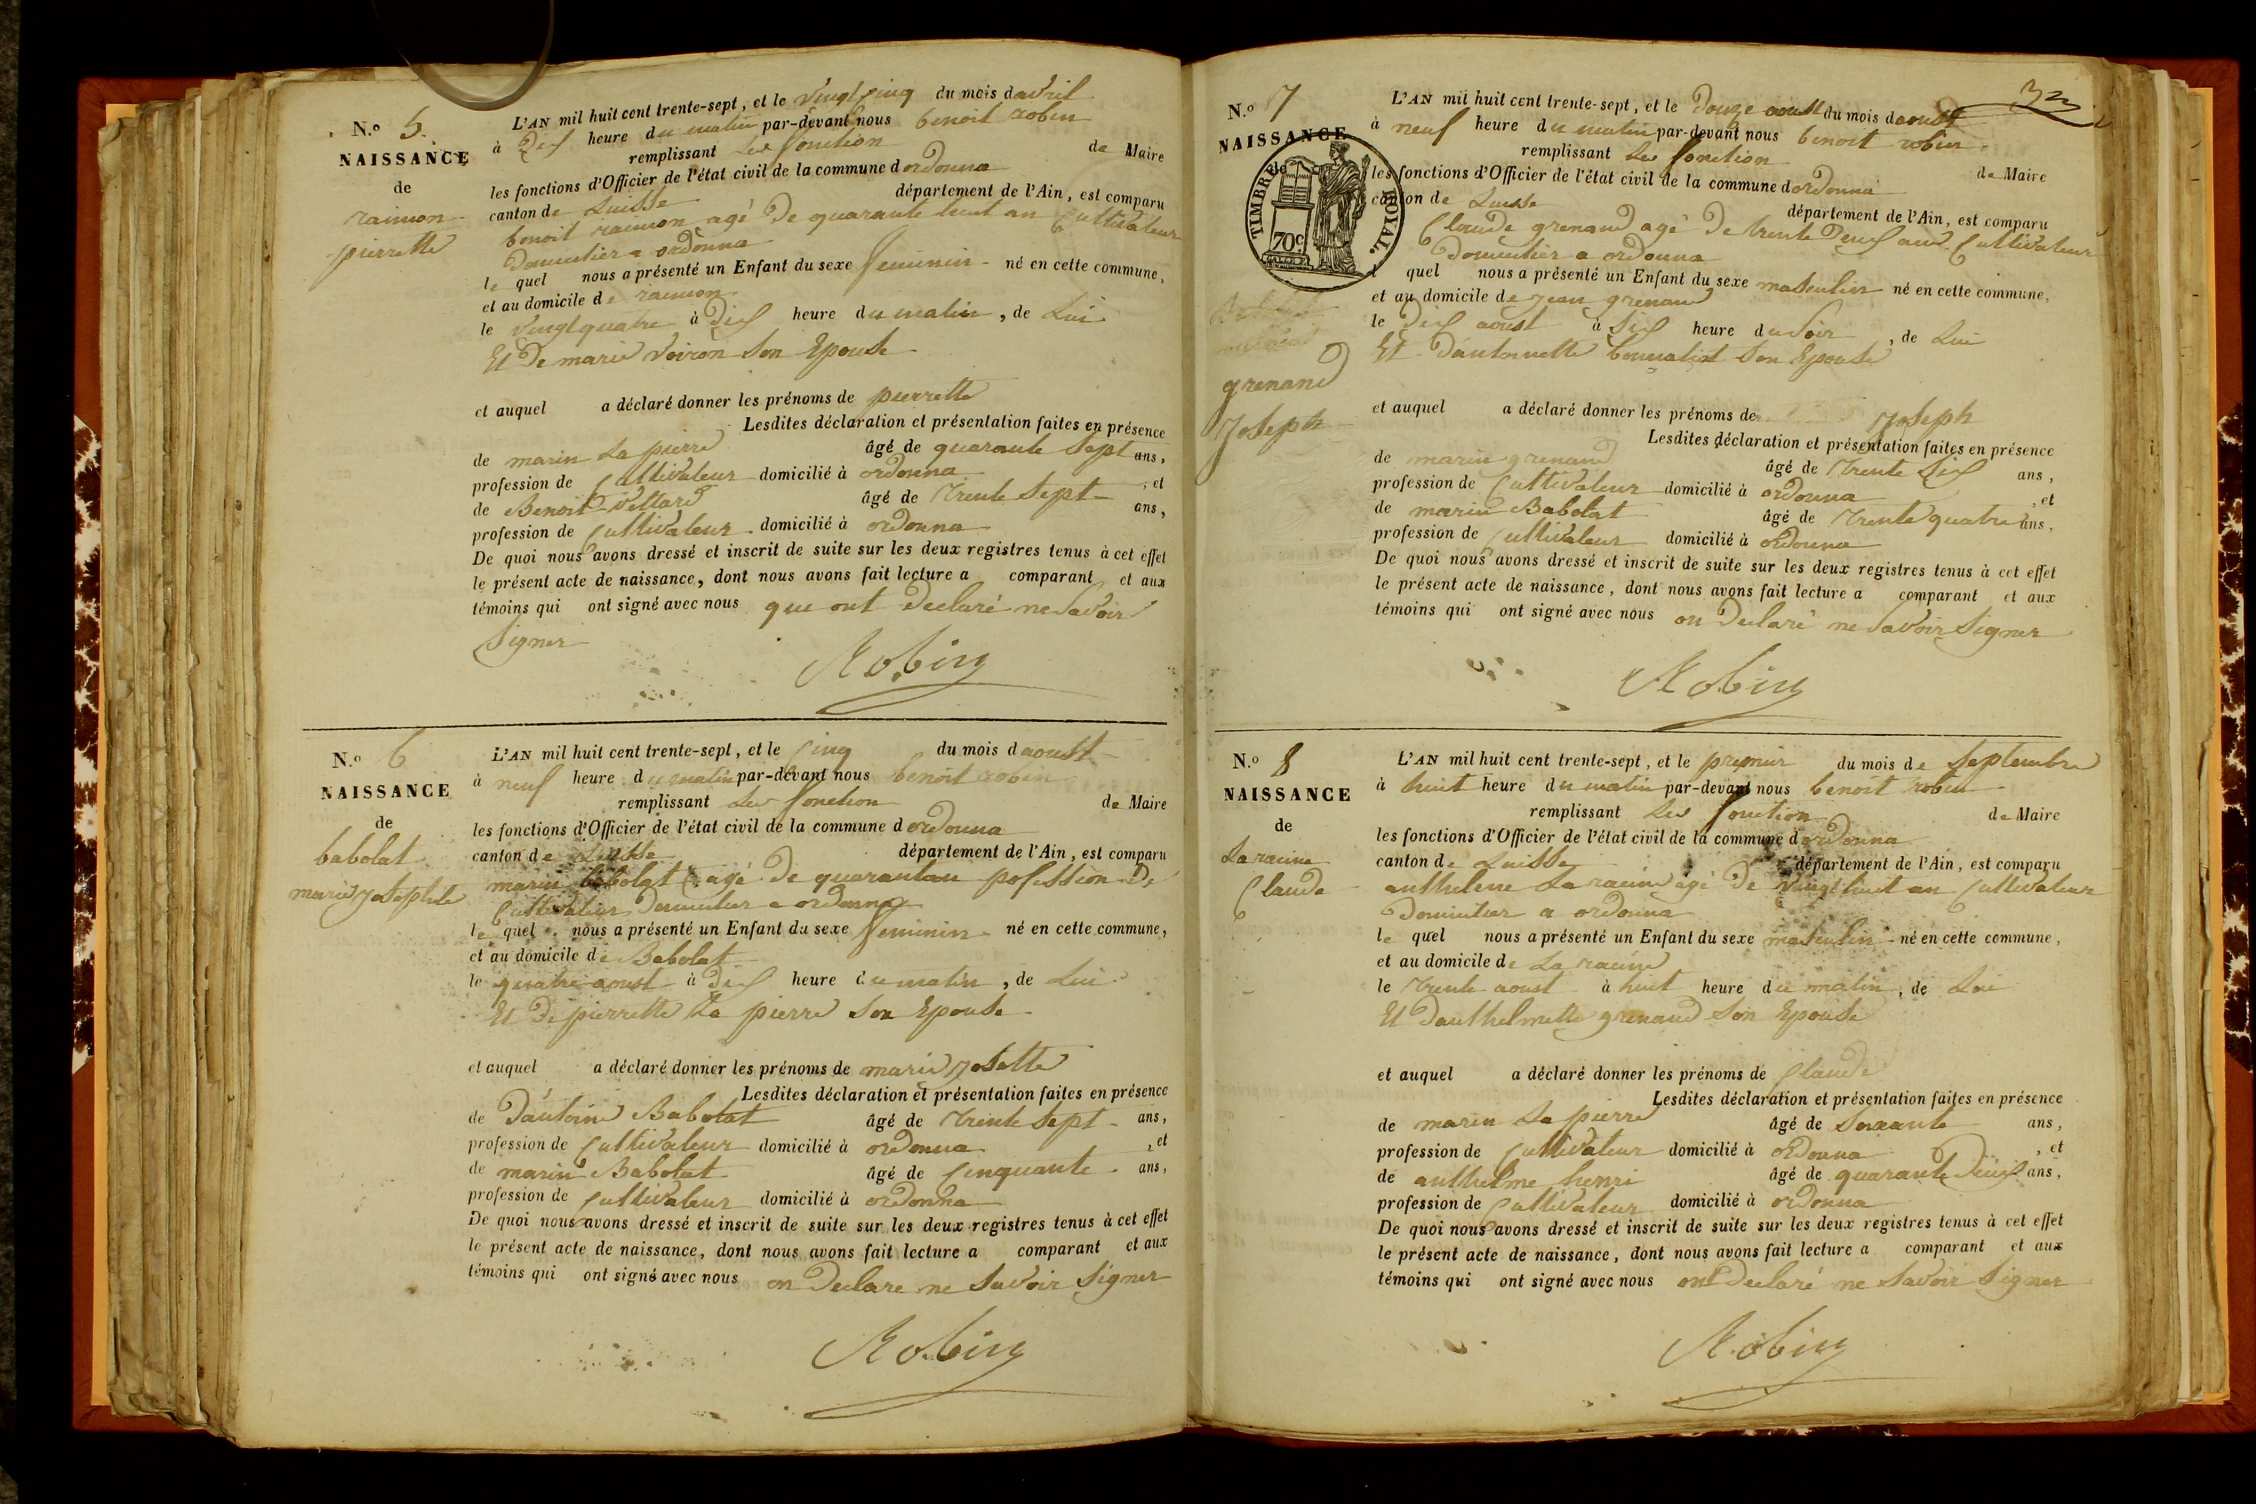 N.o 5.
NAISSANCE
de
raimon
pierrette
L'AN mil huit cent trente-sept, et le vingt cinq du mois davril
à dix heure du matin par-devant nous benoit robin
remplissant les fonction de Maire
les fonctions d'Officier de l'état civil de la commune dordonna
canton de Luisse département de l'Ain, est comparu
benoit raimon agé de quarante huit an Cultivateur
domicilier a ordonna
le quel nous a présenté un Enfant du sexe feminin né en cette commune,
et au domicile de raimon
le vingt quatre à dix heure du matin, de Lui
Et de marie voiron son Epouse
et auquel a déclaré donner les prénoms de pierrette
Lesdites déclaration et présentation faites en présence
de marin La pierre âgé de quarante sept ans,
profession de Cultivateur domicilié à ordonna, et
de Benoit Vettard âgé de trente sept ans,
profession de Cultivateur domicilié à ordonna
De quoi nous avons dressé et inscrit de suite sur les deux registres tenus à cet effet
le présent acte de naissance, dont nous avons fait lecture a comparant et aux
témoins qui ont signé avec nous que ont declaré ne savoir
signer
Robin
N.o 6
NAISSANCE
de
babolat
marie josephte
L'AN mil huit cent trente-sept, et le cinq du mois daoust
à neuf heure du matin par-devant nous benoit robin
remplissant les fonction de Maire
les fonctions d'Officier de l'état civil de la commune dordonna
canton de Luisse département de l'Ain, est comparu
marin babolat agé de quarantau pofession de
Cultivateur domicilier a ordonna
le quel nous a présenté un Enfant du sexe feminin né en cette commune,
et au domicile de Babolat
le quatre aoust à dix heure du matin, de Lui
Et de pierrette La pierre son Epouse
et auquel a déclaré donner les prénoms de marie josette
Lesdites déclaration et présentation faites en présence
de Dantoine Babolat âgé de trente sept ans,
profession de Cultivateur domicilié à ordonna, et
de marin Babolat âgé de cinquante ans,
profession de Cultivateur domicilié à ordonna
De quoi nous avons dressé et inscrit de suite sur les deux registres tenus à cet effet
le présent acte de naissance, dont nous avons fait lecture a comparant et aux
témoins qui ont signé avec nous on declare ne savoir signer
Robin
32
N.o 7
NAISSANCE
de
TIMBRE ROYAL.
70c
grenand
Joseph
L'AN mil huit cent trente-sept, et le douze aoust du mois daoust
à neuf heure du matin par-devant nous benoit robin
remplissant les fonction de Maire
les fonctions d'Officier de l'état civil de la commune dordonna
canton de Luisse département de l'Ain, est comparu
Claude grenand agé de trente deux ans Cultivateur
domicilier a ordonna
l quel nous a présenté un Enfant du sexe masculin né en cette commune,
et au domicile de jean grenand
le dix aoust à six heure du soir, de Lui
Et dantoinette son Epouse
et auquel a déclaré donner les prénoms de Joseph
Lesdites déclaration et présentation faites en présence
de marin grenand âgé de trente six ans,
profession de Cultivateur domicilié à ordonna, et
de marin Babolat âgé de trente quatre ans,
profession de Cultivateur domicilié à ordonna
De quoi nous avons dressé et inscrit de suite sur les deux registres tenus à cet effet
le présent acte de naissance, dont nous avons fait lecture a comparant et aux
témoins qui ont signé avec nous on declaré ne savoir signer
Robin
N.o 8
NAISSANCE
de
La racine
Claude
L'AN mil huit cent trente-sept, et le premier du mois de septembre
à huit heure du matin par-devant nous benoit robin
remplissant les fonction de Maire
les fonctions d'Officier de l'état civil de la commune dordonna
canton de Luisse département de l'Ain, est comparu
anthelme La racine agé de vingt huit an Cultivateur
domicilier a ordonna
le quel nous a présenté un Enfant du sexe masculin né en cette commune,
et au domicile de La racine
le trente aoust à huit heure du matin, de Lui
Et danthelmette grenand son Epouse
et auquel a déclaré donner les prénoms de Claude
Lesdites déclaration et présentation faites en présence
de marin La pierre âgé de soixante ans,
profession de Cultivateur domicilié à ordonna, et
de anthelme henri âgé de quarante deux ans,
profession de Cultivateur domicilié à ordonna
De quoi nous avons dressé et inscrit de suite sur les deux registres tenus à cet effet
le présent acte de naissance, dont nous avons fait lecture a comparant et aux
témoins qui ont signé avec nous ont declaré ne savoir signer
Robin